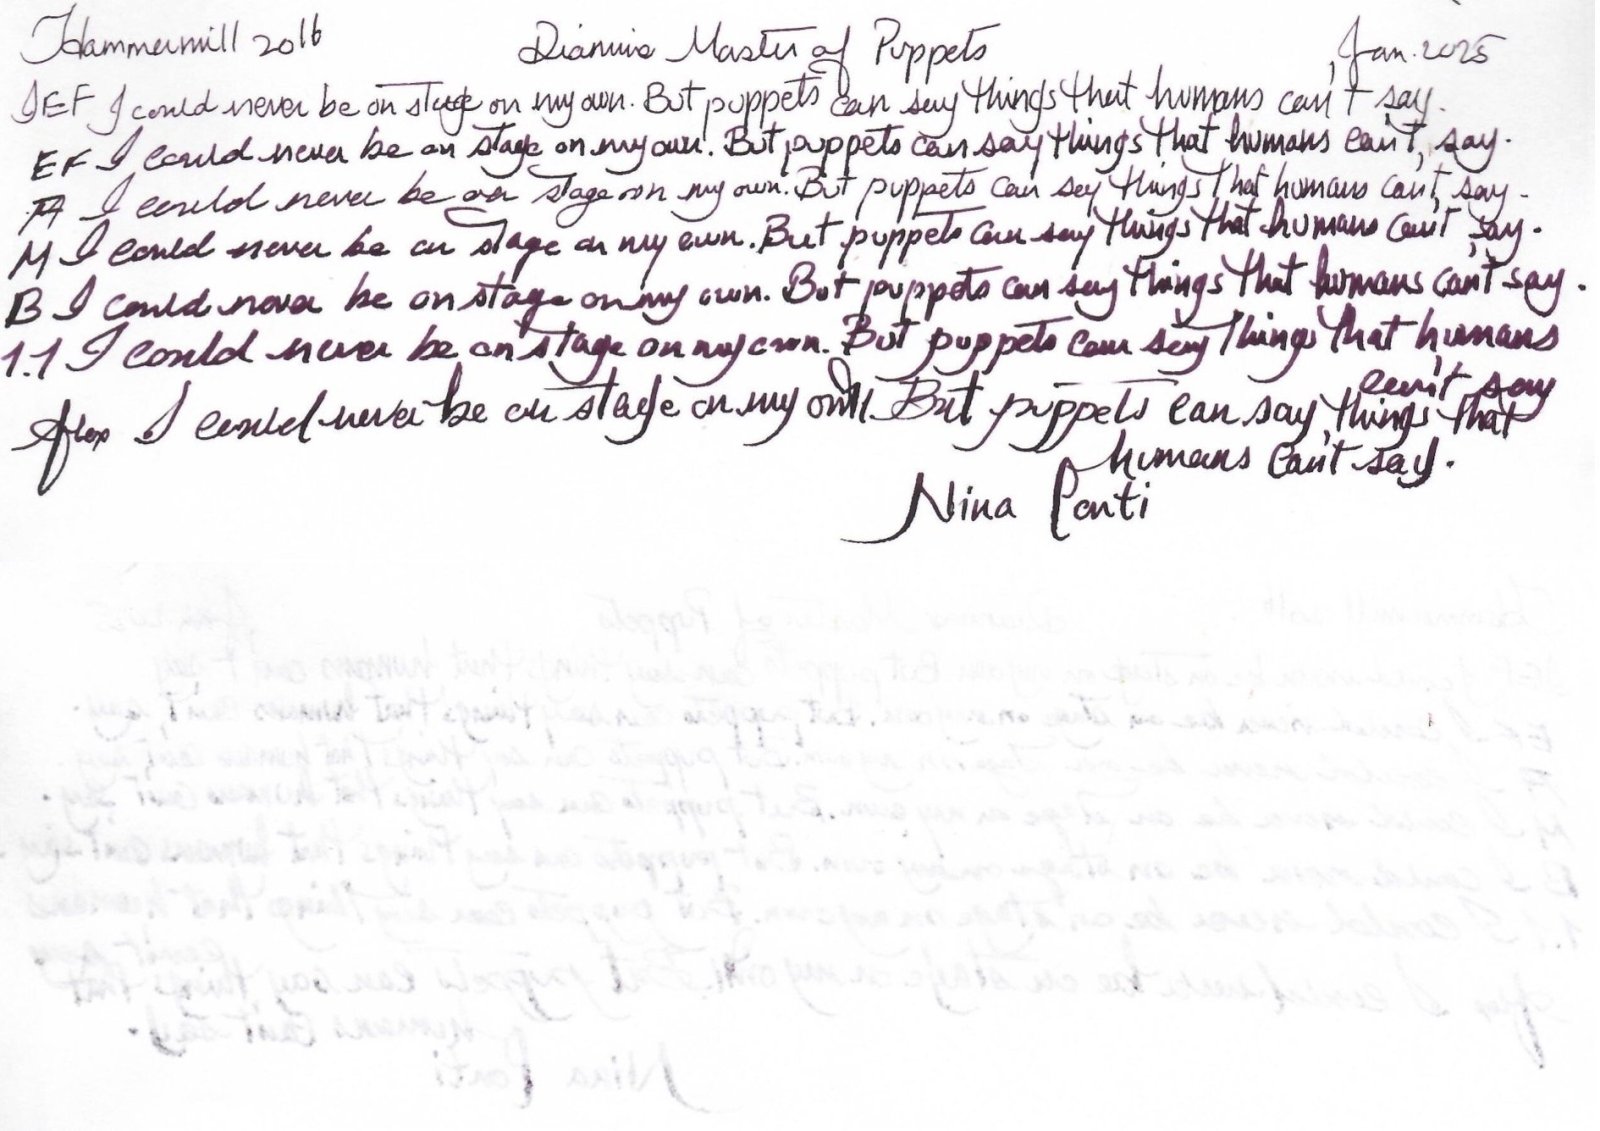 Hammermill 20lb Diamine Master of Puppets Jan. 2025
JEF I could never be on stage on my own. But puppets can say things that humans can't say.
EF I could never be on stage on my own. But puppets can say things that humans can't say.
FA I could never be on stage on my own. But puppets can say things that humans can't say.
M I could never be on stage on my own. But puppets can say things that humans can't say.
B I could never be on stage on my own. But puppets can say things that humans can't say.
1.1 I could never be on stage on my own. But puppets can say things that humans
can't say
flex I could never be on stage on my own. But puppets can say things that
humans can't say.
Nina Conti